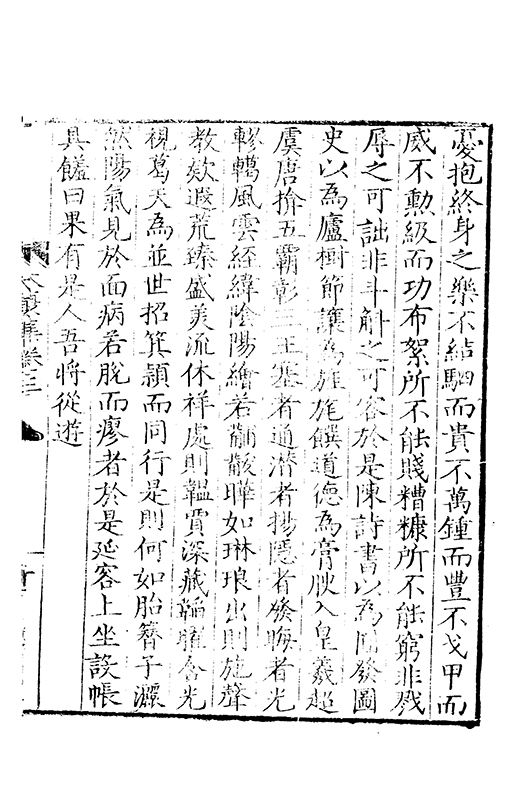 憂抱終身之樂不結駟而貴不萬鍾而豐不戈甲而
威不勲級而功布絮所不能賤糟糠所不能窮非戮
辱之可詘非斗斛之可容於是陳詩書以為發圖
史以為廬樹節讓為旌旄饌道德為膏腴入皇羲超
虞唐擠五霸彰三王塞者通潛者揚隱者發晦者光
轇轕風雲經緯陰陽繪若黼黻曄如琳琅出則施聲
教歘遐荒臻盛美流休祥處則韞買深藏韜耀含光
視葛天為並世招箕潁而同行是則何如胎簪子灑
然陽氣見於面病若脫而瘳者於是延客上坐設帳
具饎曰果有是人吾將從遊
集卷三